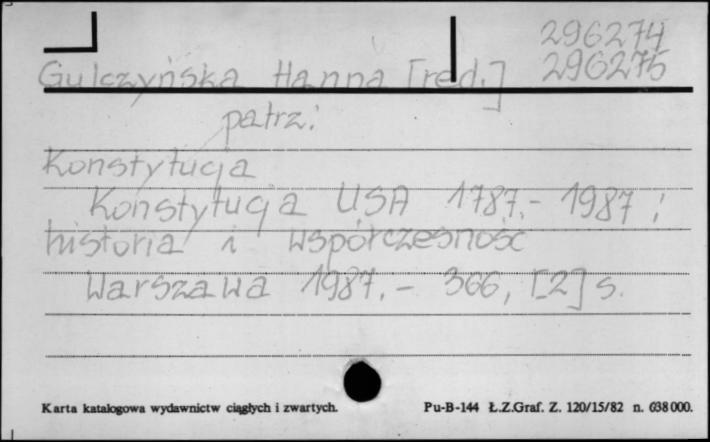 296274
Gulczyńska Hanna [red.] 296275
patrz:
Konstytucja
Konstytucja USA 1787.- 1987 :
historia i współczesność
Warszawa 1987. - 366, [2] s.
Karta katalogowa wydawnictw ciągłych i zwartych. Pu-B-144 Ł.Z.Graf. Z. 120/15/82 n. 638000.